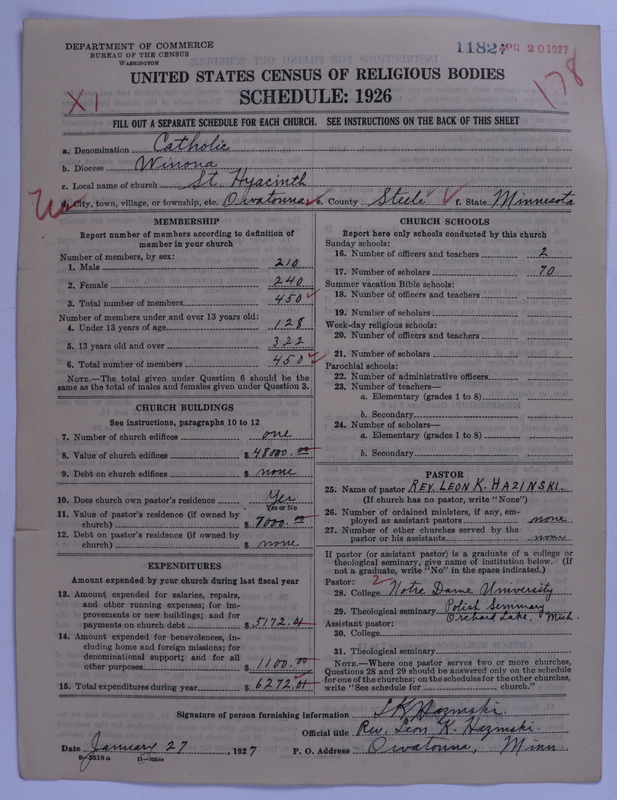 DEPARTMENT OF COMMERCE
BUREAU OF THE CENSUS
WASHINGTON
11827 APR 20 1927
178
X1
UNITED STATES CENSUS OF RELIGIOUS BODIES
SCHEDULE: 1926
FILL OUT A SEPARATE SCHEDULE FOR EACH CHURCH. SEE INSTRUCTIONS ON THE BACK OF THIS SHEET
a. Denomination Catholic
b. Diocese Winona
c. Local name of church St. Hyacinth
d. City, town, village, or township, etc. Owatonna e. County Steele f. State Minnesota
MEMBERSHIP
Report number of members according to definition of
member in your church
Number of members, by sex:
1. Male 210
2. Female 240
3. Total number of members 450
Number of members under and over 13 years old:
4. Under 13 years of age 128
5. 13 years old and over 322
6. Total number of members 450
NOTE.—The total given under Question 6 should be the
same as the total of males and females given under Question 3.
CHURCH BUILDINGS
See instructions, paragraphs 10 to 12
7. Number of church edifices one
8. Value of church edifices $ 48000.00
9. Debt on church edifices $ none
10. Does church own pastor's residence Yes
Yes or No
11. Value of pastor's residence (if owned by
church) $ 7000.00
12. Debt on pastor's residence (if owned by
church) $ none
EXPENDITURES
Amount expended by your church during last fiscal year
13. Amount expended for salaries, repairs,
and other running expenses; for im-
provements or new buildings; and for
payments on church debt $ 5172.01
14. Amount expended for benevolences, in-
cluding home and foreign missions; for
denominational support; and for all
other purposes $ 1100.00
15. Total expenditures during year $ 6272.01
CHURCH SCHOOLS
Report here only schools conducted by this church
Sunday schools:
16. Number of officers and teachers 2
17. Number of scholars 70
Summer vacation Bible schools:
18. Number of officers and teachers
19. Number of scholars
Week-day religious schools:
20. Number of officers and teachers
21. Number of scholars
Parochial schools:
22. Number of administrative officers
23. Number of teachers—
a. Elementary (grades 1 to 8)
b. Secondary
24. Number of scholars—
a. Elementary (grades 1 to 8)
b. Secondary
PASTOR
25. Name of pastor REV. LEON K. HAZINSKI.
(If church has no pastor, write "None")
26. Number of ordained ministers, if any, em-
ployed as assistant pastors none
27. Number of other churches served by the
pastor or his assistants none
If pastor (or assistant pastor) is a graduate of a college or
theological seminary, give name of institution below. (If
not a graduate, write "No" in the space indicated.)
Pastor: 2
28. College Notre Dame University
29. Theological seminary Polish Seminary
Orchard Lake, Mich.
Assistant pastor:
30. College
31. Theological seminary
NOTE.—Where one pastor serves two or more churches,
Questions 28 and 29 should be answered only on the schedule
for one of the churches; on the schedules for the other churches,
write "See schedule for church."
Signature of person furnishing information L K Hazinski
Official title Rev. Leon K. Hazinski
Date January 27, 1927 P. O. Address Owatonna, Minn.
8-5518a